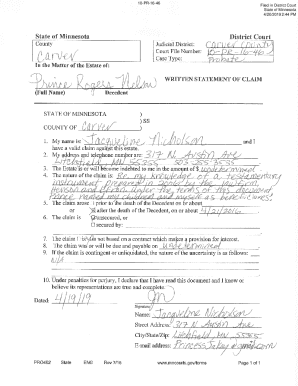 10-PR-16-46
Filed in District Court
State of Minnesota
4/26/2019 2:44 PM
State of Minnesota District Court
County Judicial District: Carver County
Carver Court File Number: 10-PR-16-46
Case Type: Probate
In the Matter of the Estate of:
Prince Rogers Nelson WRITTEN STATEMENT OF CLAIM
(Full Name) Decedent
STATE OF MINNESOTA )
) SS
COUNTY OF Carver )
1. My name is: Jacqueline Nicholson and I
have a valid claim against this estate.
2. My address and telephone number are: 317 N Austin Ave
Litchfield, MN 55355
3. The Estate is or will become indebted to me in the amount of $ undetermined
4. The nature of the claim is: By my knowledge of a testamentary
instrument prepared in
and under the terms of this document
Prince named my children and myself as beneficiaries.
5. The claim arose prior to the death of the Decedent on or about
or after the death of the Decedent, on or about 4/21/2016
6. The claim is unsecured, or
secured by:
7. The claim is not based on a contract which makes a provision for interest.
8. The claim was or will be due and payable on undetermined
9. If the claim is contingent or unliquidated, the nature of the uncertainty is as follows:
N/A
10. Under penalties for perjury, I declare that I have read this document and I know or
believe its representations are true and complete.
Dated: 4/19/19
Signature
Name: Jacqueline Nicholson
Street Address: 317 N Austin Ave
City/State/Zip: Litchfield, MN 55355
E-mail address:
PRO402 State ENG Rev 7/16 www.mncourts.gov/forms Page 1 of 1